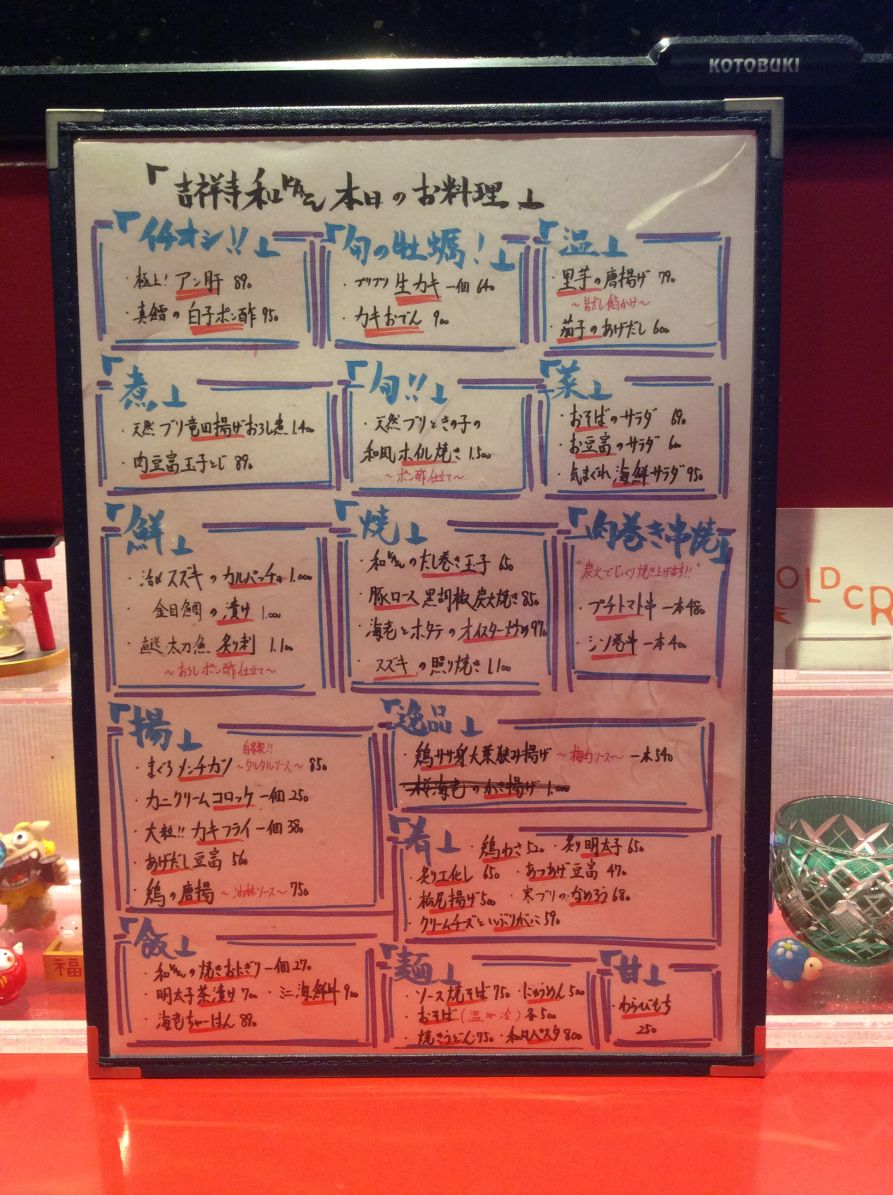 KOTOBUKI
「吉祥寺和 本日のお料理」
「イチオシ!!」
・極上! アン肝 890
・真鱈の白子ポン酢 950
「旬の牡蠣!」
・プリプリ生カキ一個 640
・カキおでん 900
「温」
・里芋の唐揚げ 790
・茄子のあげだし 600
「煮」
・天然ブリ竜田揚げおろし煮 1.400
・肉豆富玉子とじ 890
「旬!!」
・天然ブリときの子の
和風ホイル焼き 1.500
〜ポン酢仕立て〜
「菜」
・おそばのサラダ 690
・お豆富のサラダ 600
・気まぐれ海鮮サラダ 950
「鮮」
・スズキのカルパッチョ 1.000
・金目鯛の漬け 1.000
・直送太刀魚炙り刺 1.100
〜おろしポン酢仕立て〜
「焼」
・和のだし巻き玉子 650
・豚ロース黒胡椒炭火焼き 850
・海老とホタテのオイスター炒め 970
・スズキの照り焼き 1.100
「肉巻き串焼」
"炭火でじっくり焼き上げます!!"
・プチトマト串 一本 480
・シソ巻串 一本 400
「揚」
・まぐろメンチカツ 自家製!! 〜タルタルソース〜 850
・カニクリームコロッケ 一個 250
・大粒!! カキフライ 一個 380
・あげだし豆富 560
・鶏の唐揚 〜油淋ソース〜 750
「逸品」
・鶏ササ身大葉挟み揚げ 〜梅肉ソース〜 一本 540
・桜海老のかき揚げ 1.000
「肴」 ・鶏わさ 520 ・炙り明太子 650
・炙り〆しめ 650 ・あつあげ豆富 470
・栃尾揚げ 500 ・寒ブリのなめろう 680
・クリームチーズといぶりがっこ 590
「飯」
・和の焼きおにぎり 一個 270
・明太子茶漬け 700 ・ミニ海鮮丼 900
・海老ちゃーはん 890
「麺」
・ソース焼そば 750 ・にゅうめん 500
・おそば(温or冷)各500
・焼きうどん 950 ・和風パスタ 800
「甘」
・わらびもち
250
OLD CR
福